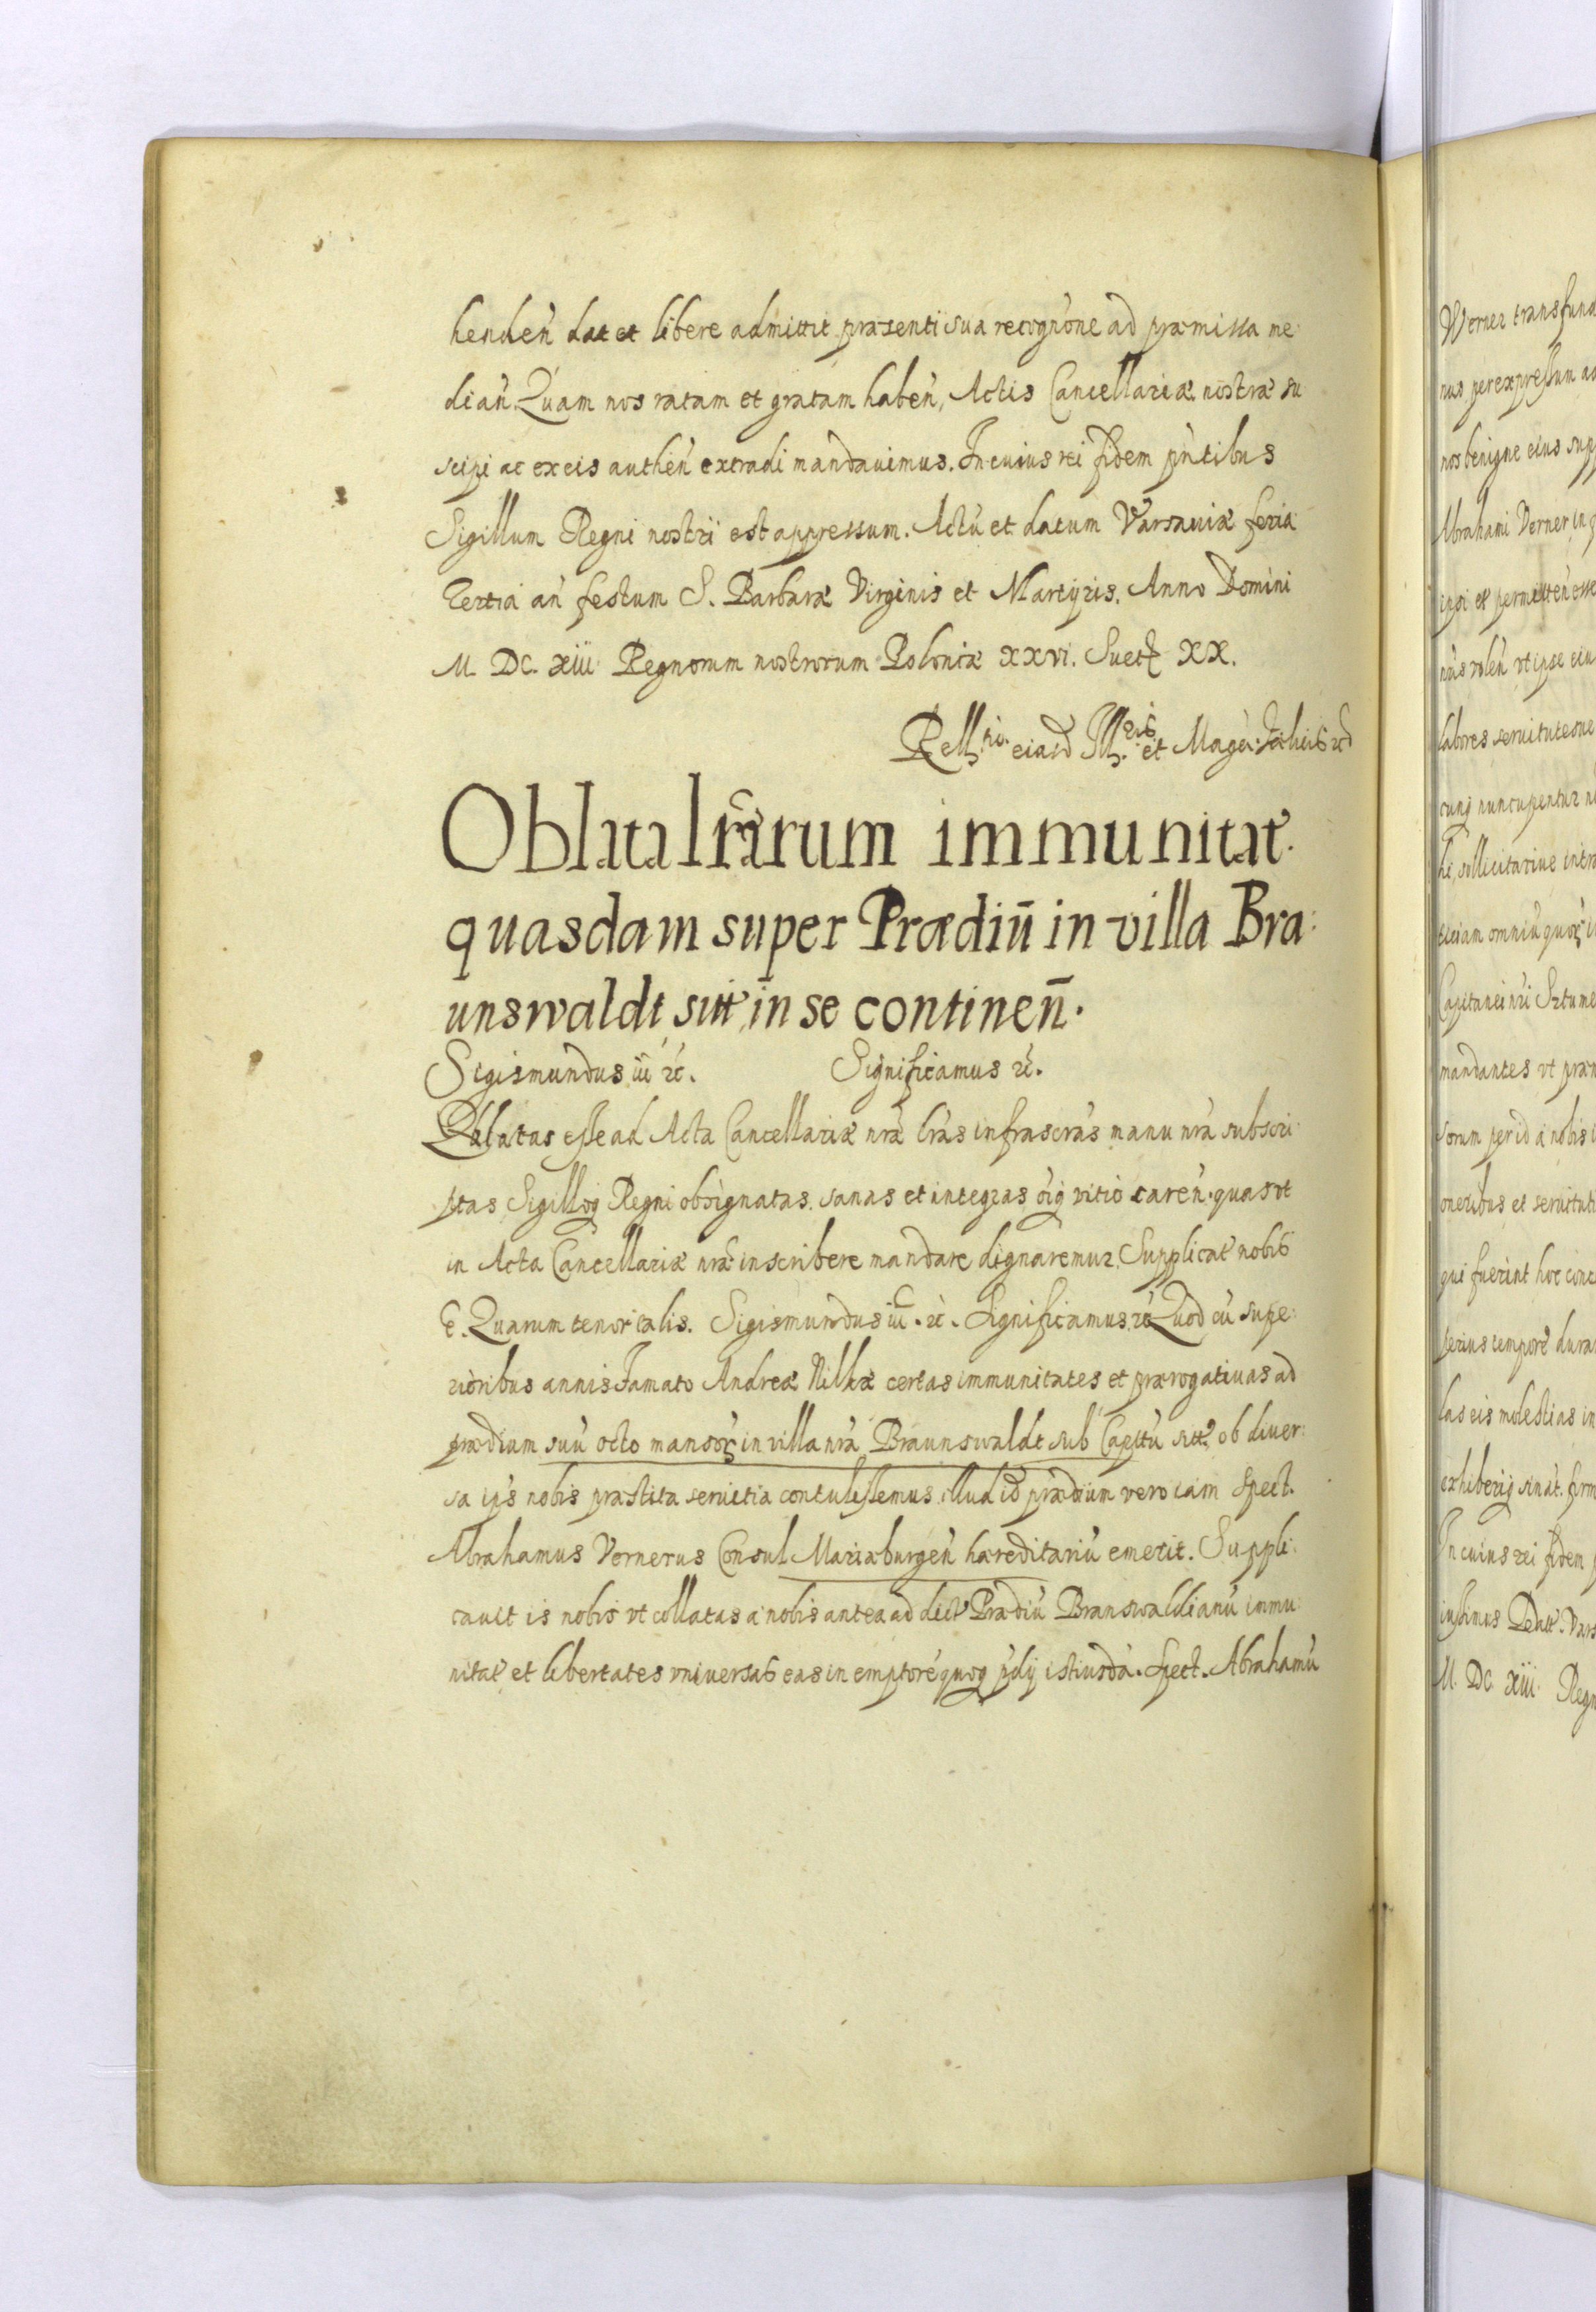 henden̄ dat et libere admittit præsenti sua recogn̄one ad præmissa me
dian̄. Quam nos ratam et gratam haben̄, Actis Cancellariæ nostræ su
scipi ac ex eis authen̄ extradi mandauimus. In cuius rei fidem pn̄tibus
Sigillum Regni nostri est appressum. Actū et datum Varsauiæ feria
Tertia an̄ festum S. Barbaræ Virginis et Martyris. Anno Domini
M. DC. XIII Regnorum nostrorum Poloniæ XXVI. Suetę XX.
Rell tio. eiusd Ill. et
Oblata lrārum immunitat.
quasdam super Prædiū in villa Bra:
unswaldt sitt in se continen̄.
Sigismundus iii etc. Significamus etc.
Oblatas esse ad Acta Cancellariæ nrǣ lrās infrascrās manu nrā subscri:
ptas Sigilloq Regni obsignatas. sanas et integras oīq vitio caren̄. quas vt
in Acta Cancellariæ nrǣ inscribere mandare dignaremur. Supplicat nobis
e. Quarum tenor talis. Sigismundus iii. etc. Significamus etc Quod cū supe:
rioribus annis Famato Andreæ Nilkæ certas immunitates et prærogatiuas ad
prædium suū octo mansor̄ in villa nrā Braunswaldt sub Capitū sitt. ob diuer:
sa ips nobis præstita seruitia contulissemus illud id prædium vero iam Spect.
Abrahamus Vernerus Consul Mariæburgen̄ hæreditariū emerit. Suppli:
cauit is nobis vt collatas a nobis antea ad dict Prædiū Branswaldianū immu
nitat et libertates vniuersas eas in emptorē quoq pdij istiusdā. Spect. Abrahamū
Verner transfund
nus per expressum ad
nos benigne eius supp
Abrahami Verner in p
ipsi et permitten̄ esse
volen̄ vt ipse eiu
labores seruitutesue
cunq nuncupentur
sollicitariue intra
omniū quor̄
Capitanei nri Sztume
mandantes vt præm
sorum per id a nobis
oneribus et seruituti
qui fuerint hoc conc
tempore dura
las eis molestias in
exhiberiq sinat. firm
In cuius rei fidem p
iussimus Datt. Vars
M. DC. XIII. Regn